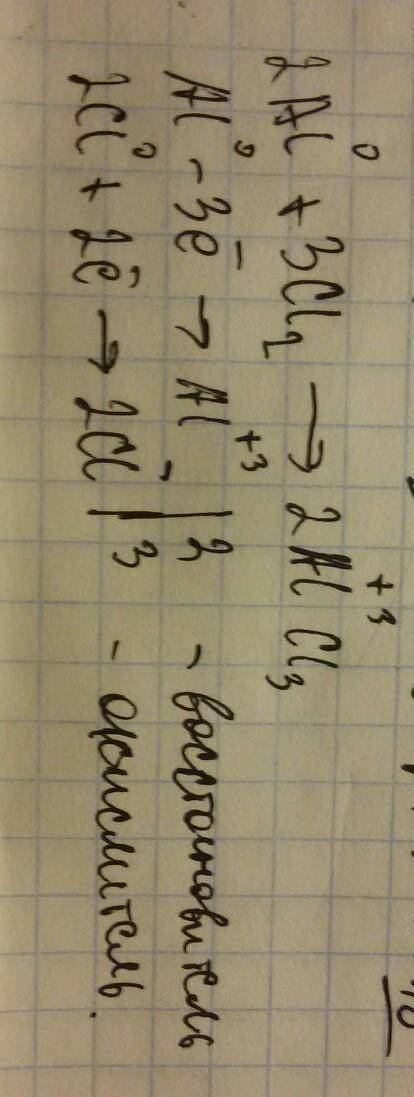 2Al⁰ + 3Cl₂ → 2Al⁺³Cl₃
Al⁰ - 3e⁻ → Al⁺³ | 2 - восстановитель
2Cl⁰ + 2e⁻ → 2Cl⁻ | 3 - окислитель.